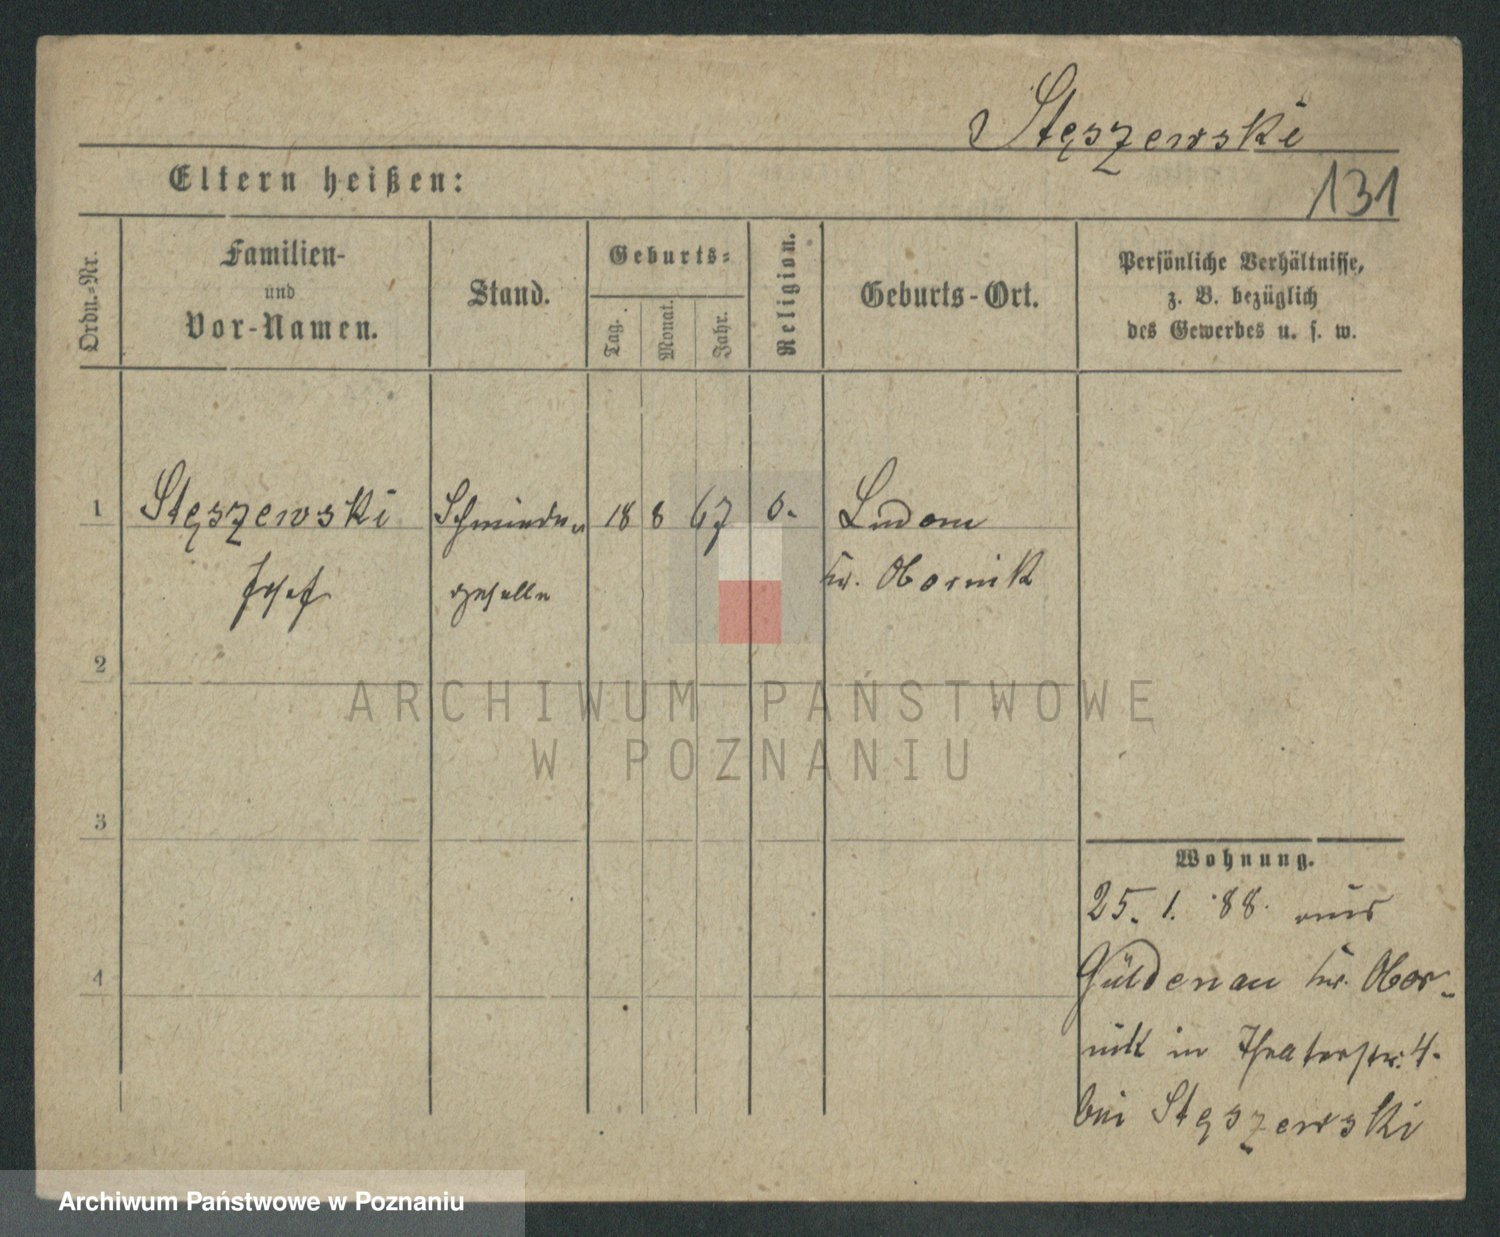 Stęszewski
Eltern heißen:
131
Ordn.-Nr.
Familien-
und
Vor-Namen.
Stand.
Geburts-
Tag.
Monat.
Jahr.
Religion.
Geburts-Ort.
Persönliche Verhältnisse,
z. B. bezüglich
des Gewerbes u. s. w.
1 Stęszewski 18 8 67 Ludom
Josef geselle Kr. Obornik
2
ARCHIWUM PAŃSTWOWE
W POZNANIU
3
Wohnung.
25. 1. 88. aus
4
Güldenau Kr. Obor-
nik in Theaterstr. 4.
bei Stęszewski
Archiwum Państwowe w Poznaniu